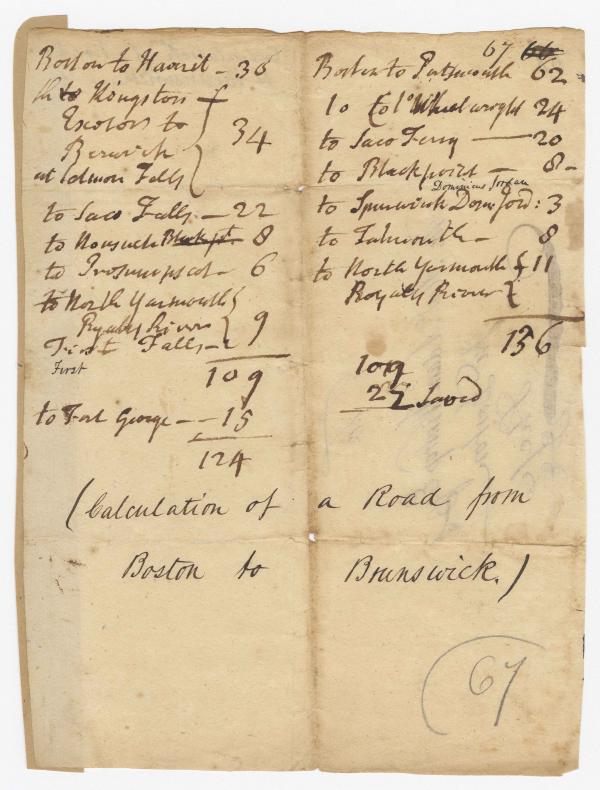 Boston to Haveril - 30
to Kingston
Exeter to
Berwick 34
at Salmon Falls
to Saco Falls - 22
to Nonsuch Blackpt. - 8
to Presumpscot - 6
to North Yarmouth
Royalls River 9
First Falls -
First
109
to Fort George - 15
124
67 66
Boston to Portsmouth 62
to Colo Wheelwright 24
to Saco Ferry - 20
to Blackpoint - 8 -
Dominicus Jordan
to Spurwink : 3
to Falmouth - 8
to North Yarmouth 11
Royalls River
136
109
27 Saved
(Calculation of a Road from
Boston to Brunswick.)
67